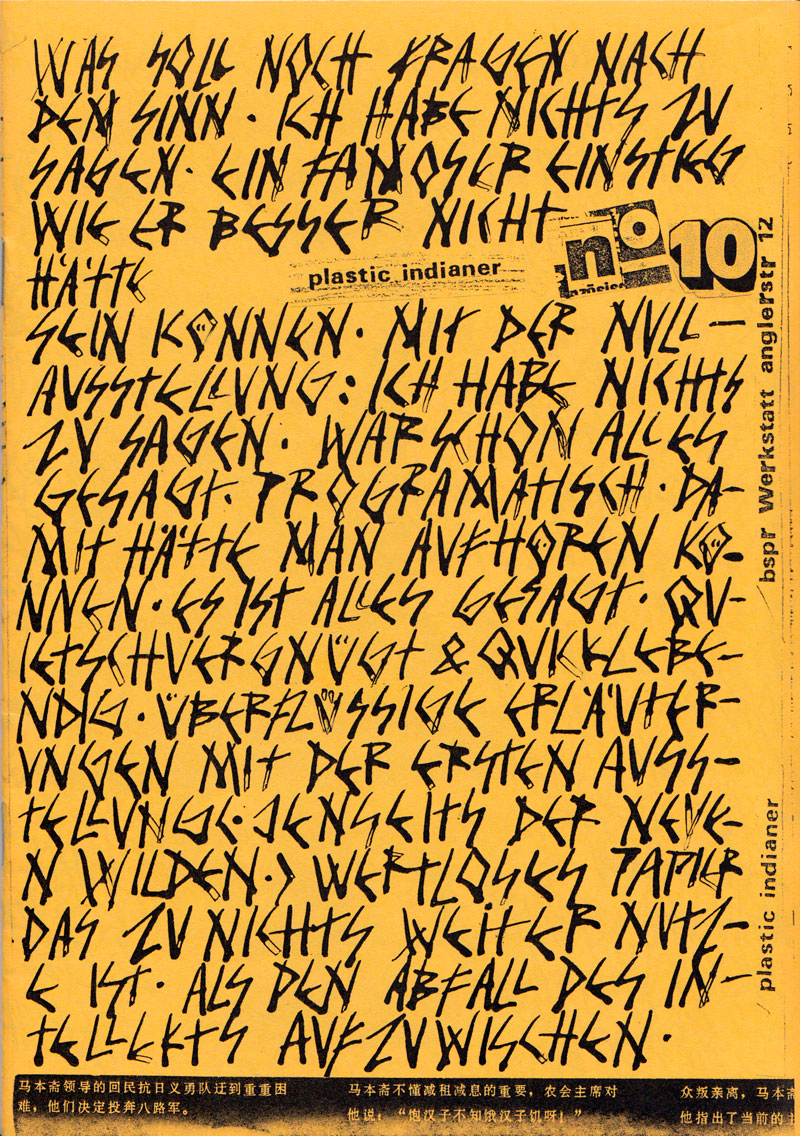 WAS SOLL NOCH FRAGEN NACH
DEM SINN. ICH HABE NICHTS ZU
SAGEN. EIN FAMOSER EINSTIEG
WIE ER BESSER NICHT
HÄTTE
plastic indianer
no
10
SEIN KÖNNEN. MIT DER NULL-
AUSSTELLUNG: ICH HABE NICHTS
ZU SAGEN. WAR SCHON ALLES
GESAGT. PROGRAMATISCH. DA-
MIT HÄTTE MAN AUFHÖREN KÖ-
NNEN. ES IST ALLES GESAGT. QU-
IETSCHVERGNÜGT & QUICKLEBE-
NDIG. ÜBERFLÜSSIGE ERLÄUTER-
UNGEN MIT DER ERSTEN AUSS-
TELLUNG(JENSEITS DER NEUE-
N WILDEN.) WERTLOSES PAPIER
DAS ZU NICHTS WEITER NUTZ-
E IST. ALS DEN ABFALL DES IN-
TELLEKTS AUFZUWISCHEN.
bspr Werkstatt anglerstr 12
plastic indianer
马本斋领导的回民抗日义勇队迂到重重困
难，他们决定投奔八路军。
马本斋不懂减租减息的重要，农会主席对
他说：“饱汉子不知饿汉子饥呀！”
众叛亲离，马本斋
他指出了当前的主